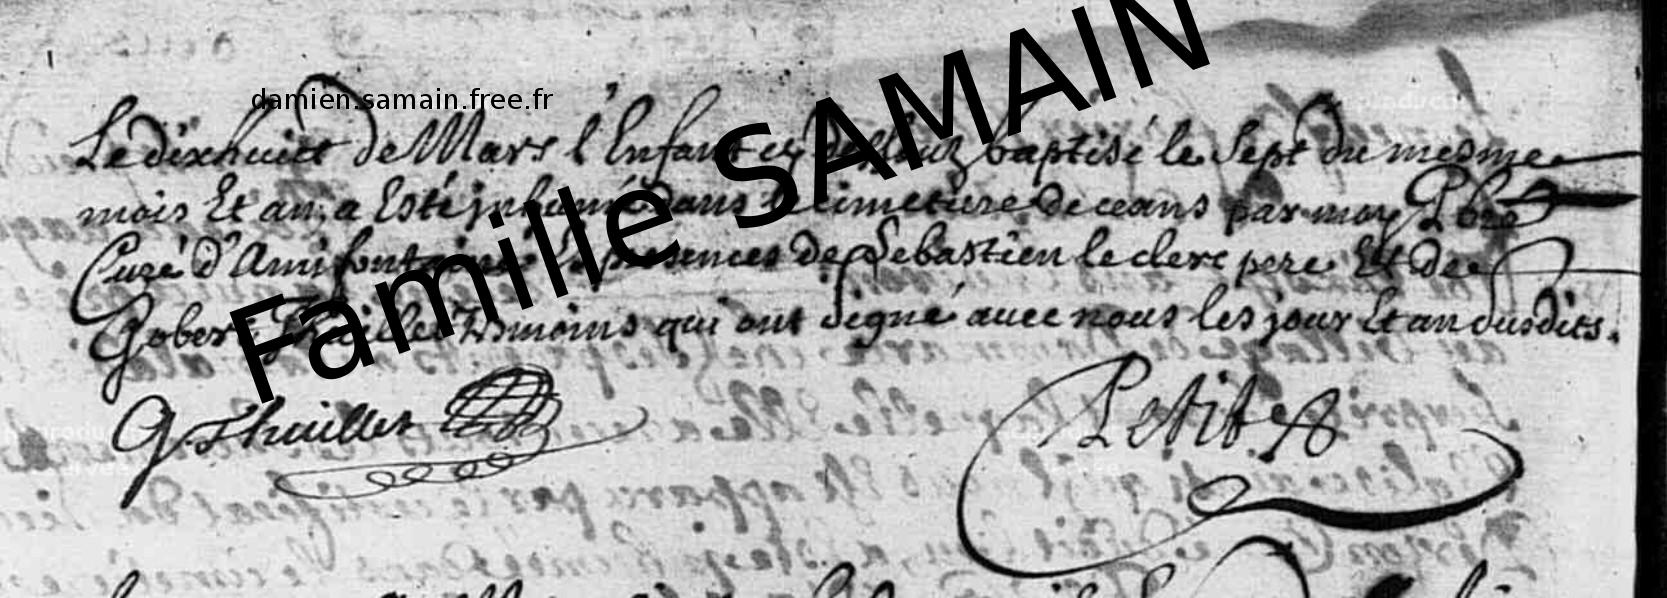 damien.samain.free.fr
Famille SAMAIN
Le dixhuict de Mars l'Enfant cy dessus baptisé le sept du mesme
mois Et an, a Esté inhumé dans le cimetiere de ceans par moy Pbre
Curé d'Amifontaine Es presences de Sebastien le clerc pere Et de
Gobert Thuillet tesmoins qui ont signé avec nous les jour Et an susdits.
G. Thuillet
Petit